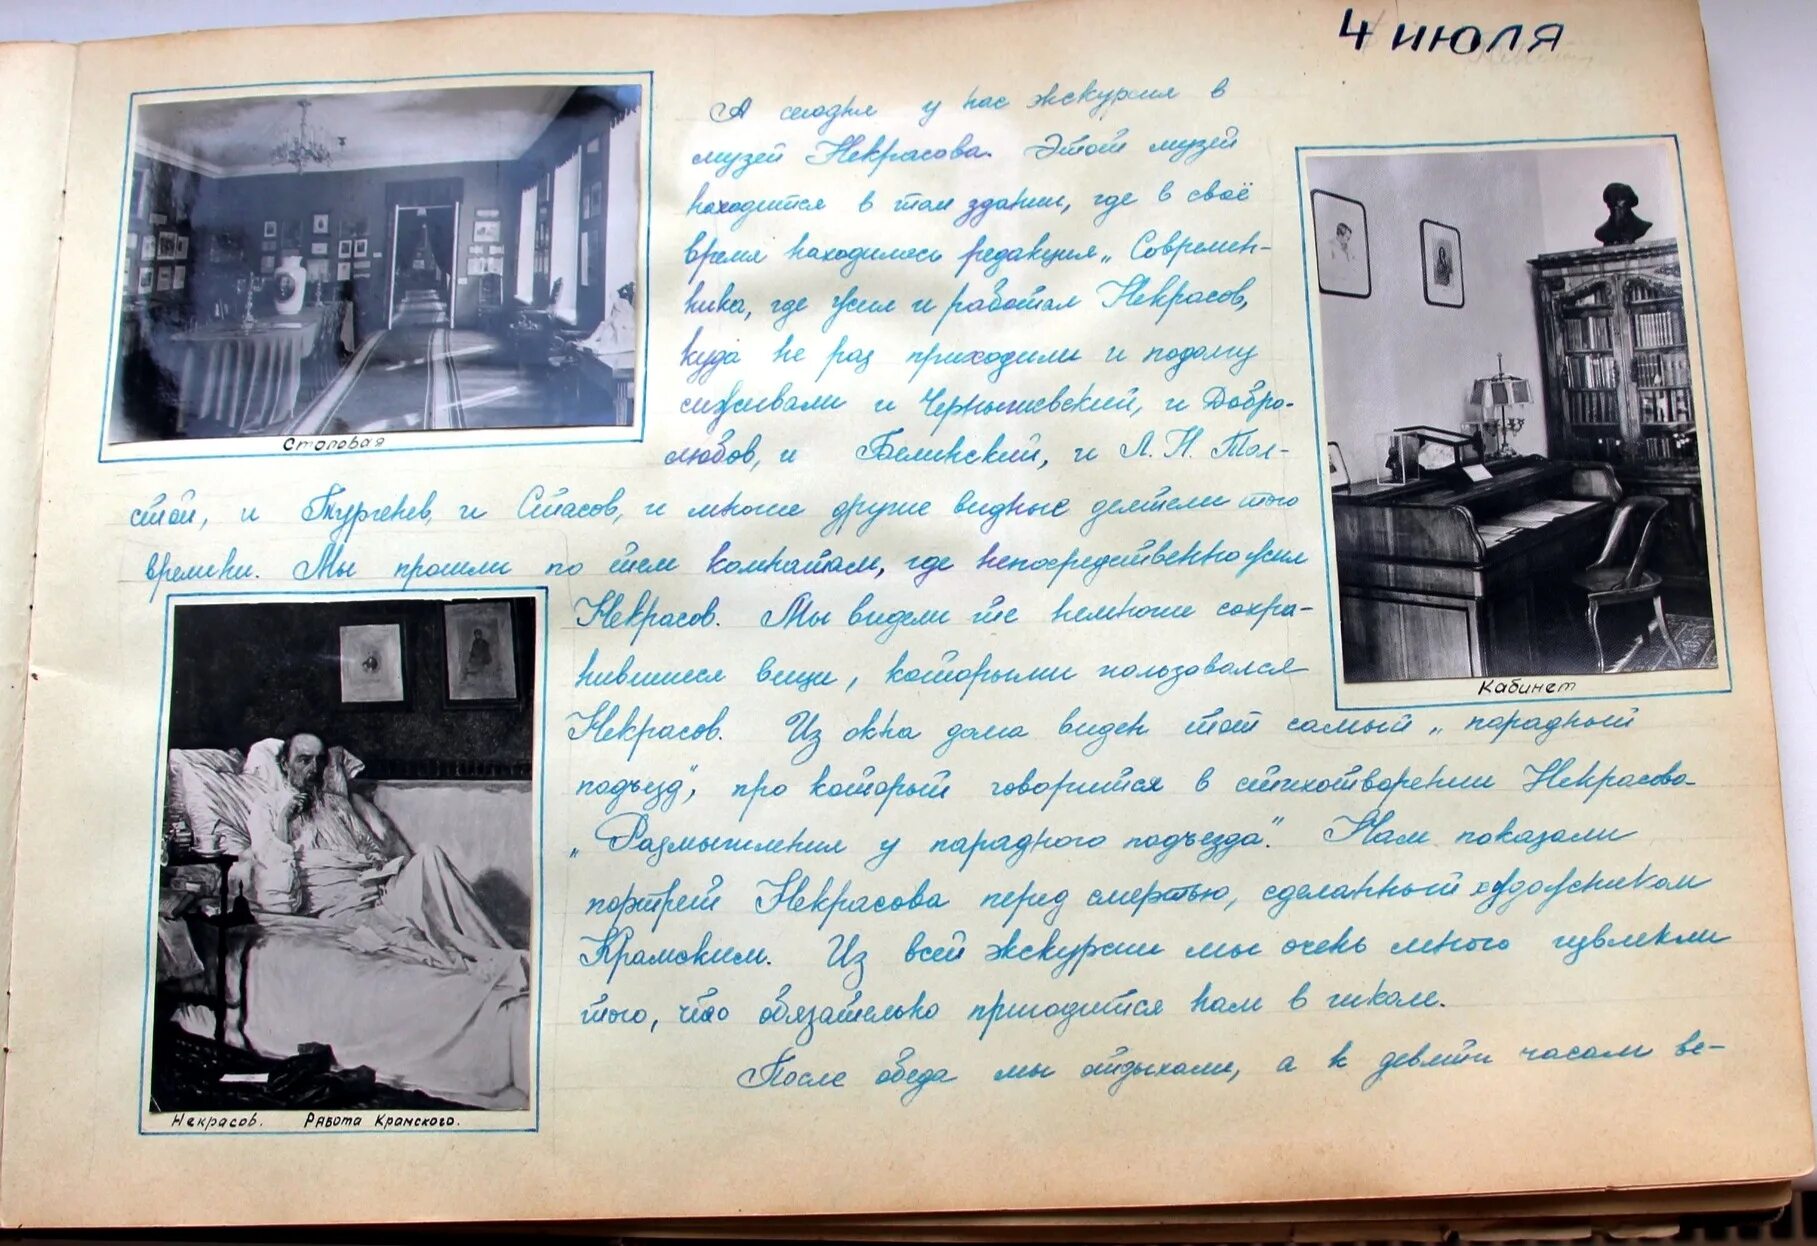 4 июля
А сегодня у нас экскурсия в
музей Некрасова. Этот музей
находится в том здании, где в своё
время находилась редакция „Современ-
ника, где жил и работал Некрасов,
куда не раз приходили и подолгу
сиживали и Чернышевский, и Добро-
любов, и Белинский, и Л. Н. Тол-
стой, и Тургенев, и Стасов, и многие другие видные деятели того
времени. Мы прошли по тем комнатам, где непосредственно жил
Некрасов. Мы видели те немногие сохра-
нившиеся вещи, которыми пользовался
Некрасов. Из окна дома виден тот самый „парадный
подъезд", про который говорится в стихотворении Некрасова-
„Размышления у парадного подъезда". Нам показали
портрет Некрасова перед смертью, сделанный художником
Крамским. Из всей экскурсии мы очень много извлекли
того, что обязательно пригодится нам в школе.
После обеда мы отдыхали, а к девяти часам ве-
Столовая
Кабинет
Некрасов. Работа Крамского.